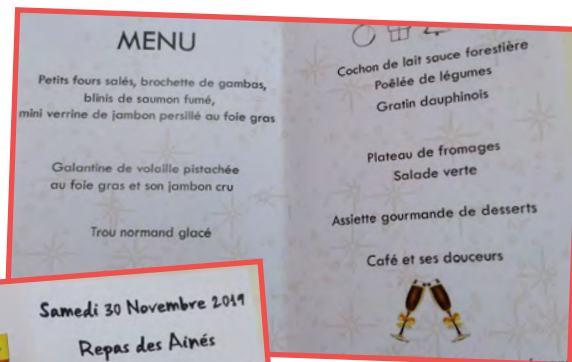 MENU
Petits fours salés, brochette de gambas,
blinis de saumon fumé,
mini verrine de jambon persillé au foie gras
Galantine de volaille pistachée
au foie gras et son jambon cru
Trou normand glacé
Cochon de lait sauce forestière
Poêlée de légumes
Gratin dauphinois
Plateau de fromages
Salade verte
Assiette gourmande de desserts
Café et ses douceurs
Samedi 30 Novembre 2019
Repas des Ainés